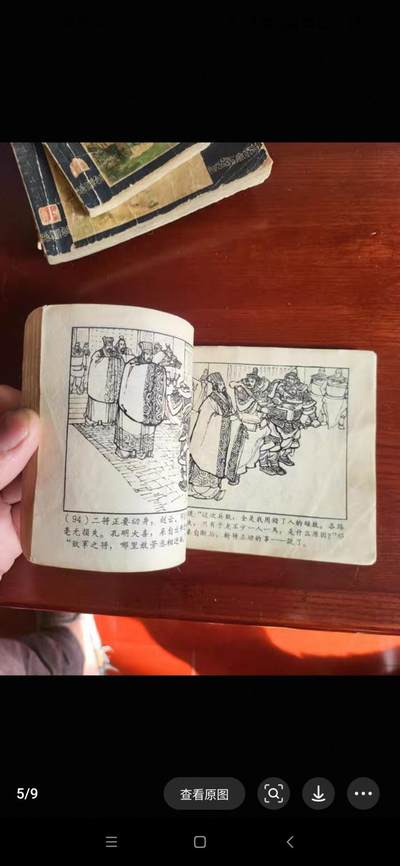 (94)二将正要动身,赵云、
毫无损失。孔明大喜,亲自出
"败军之将,哪里敢劳丞相迎
"这次兵败,全是我用错了人的缘故。各路
只有子龙不少一人一马,是什么原因?"邓
自断后,斩将立功的事一一说了。
5/9
查看原图